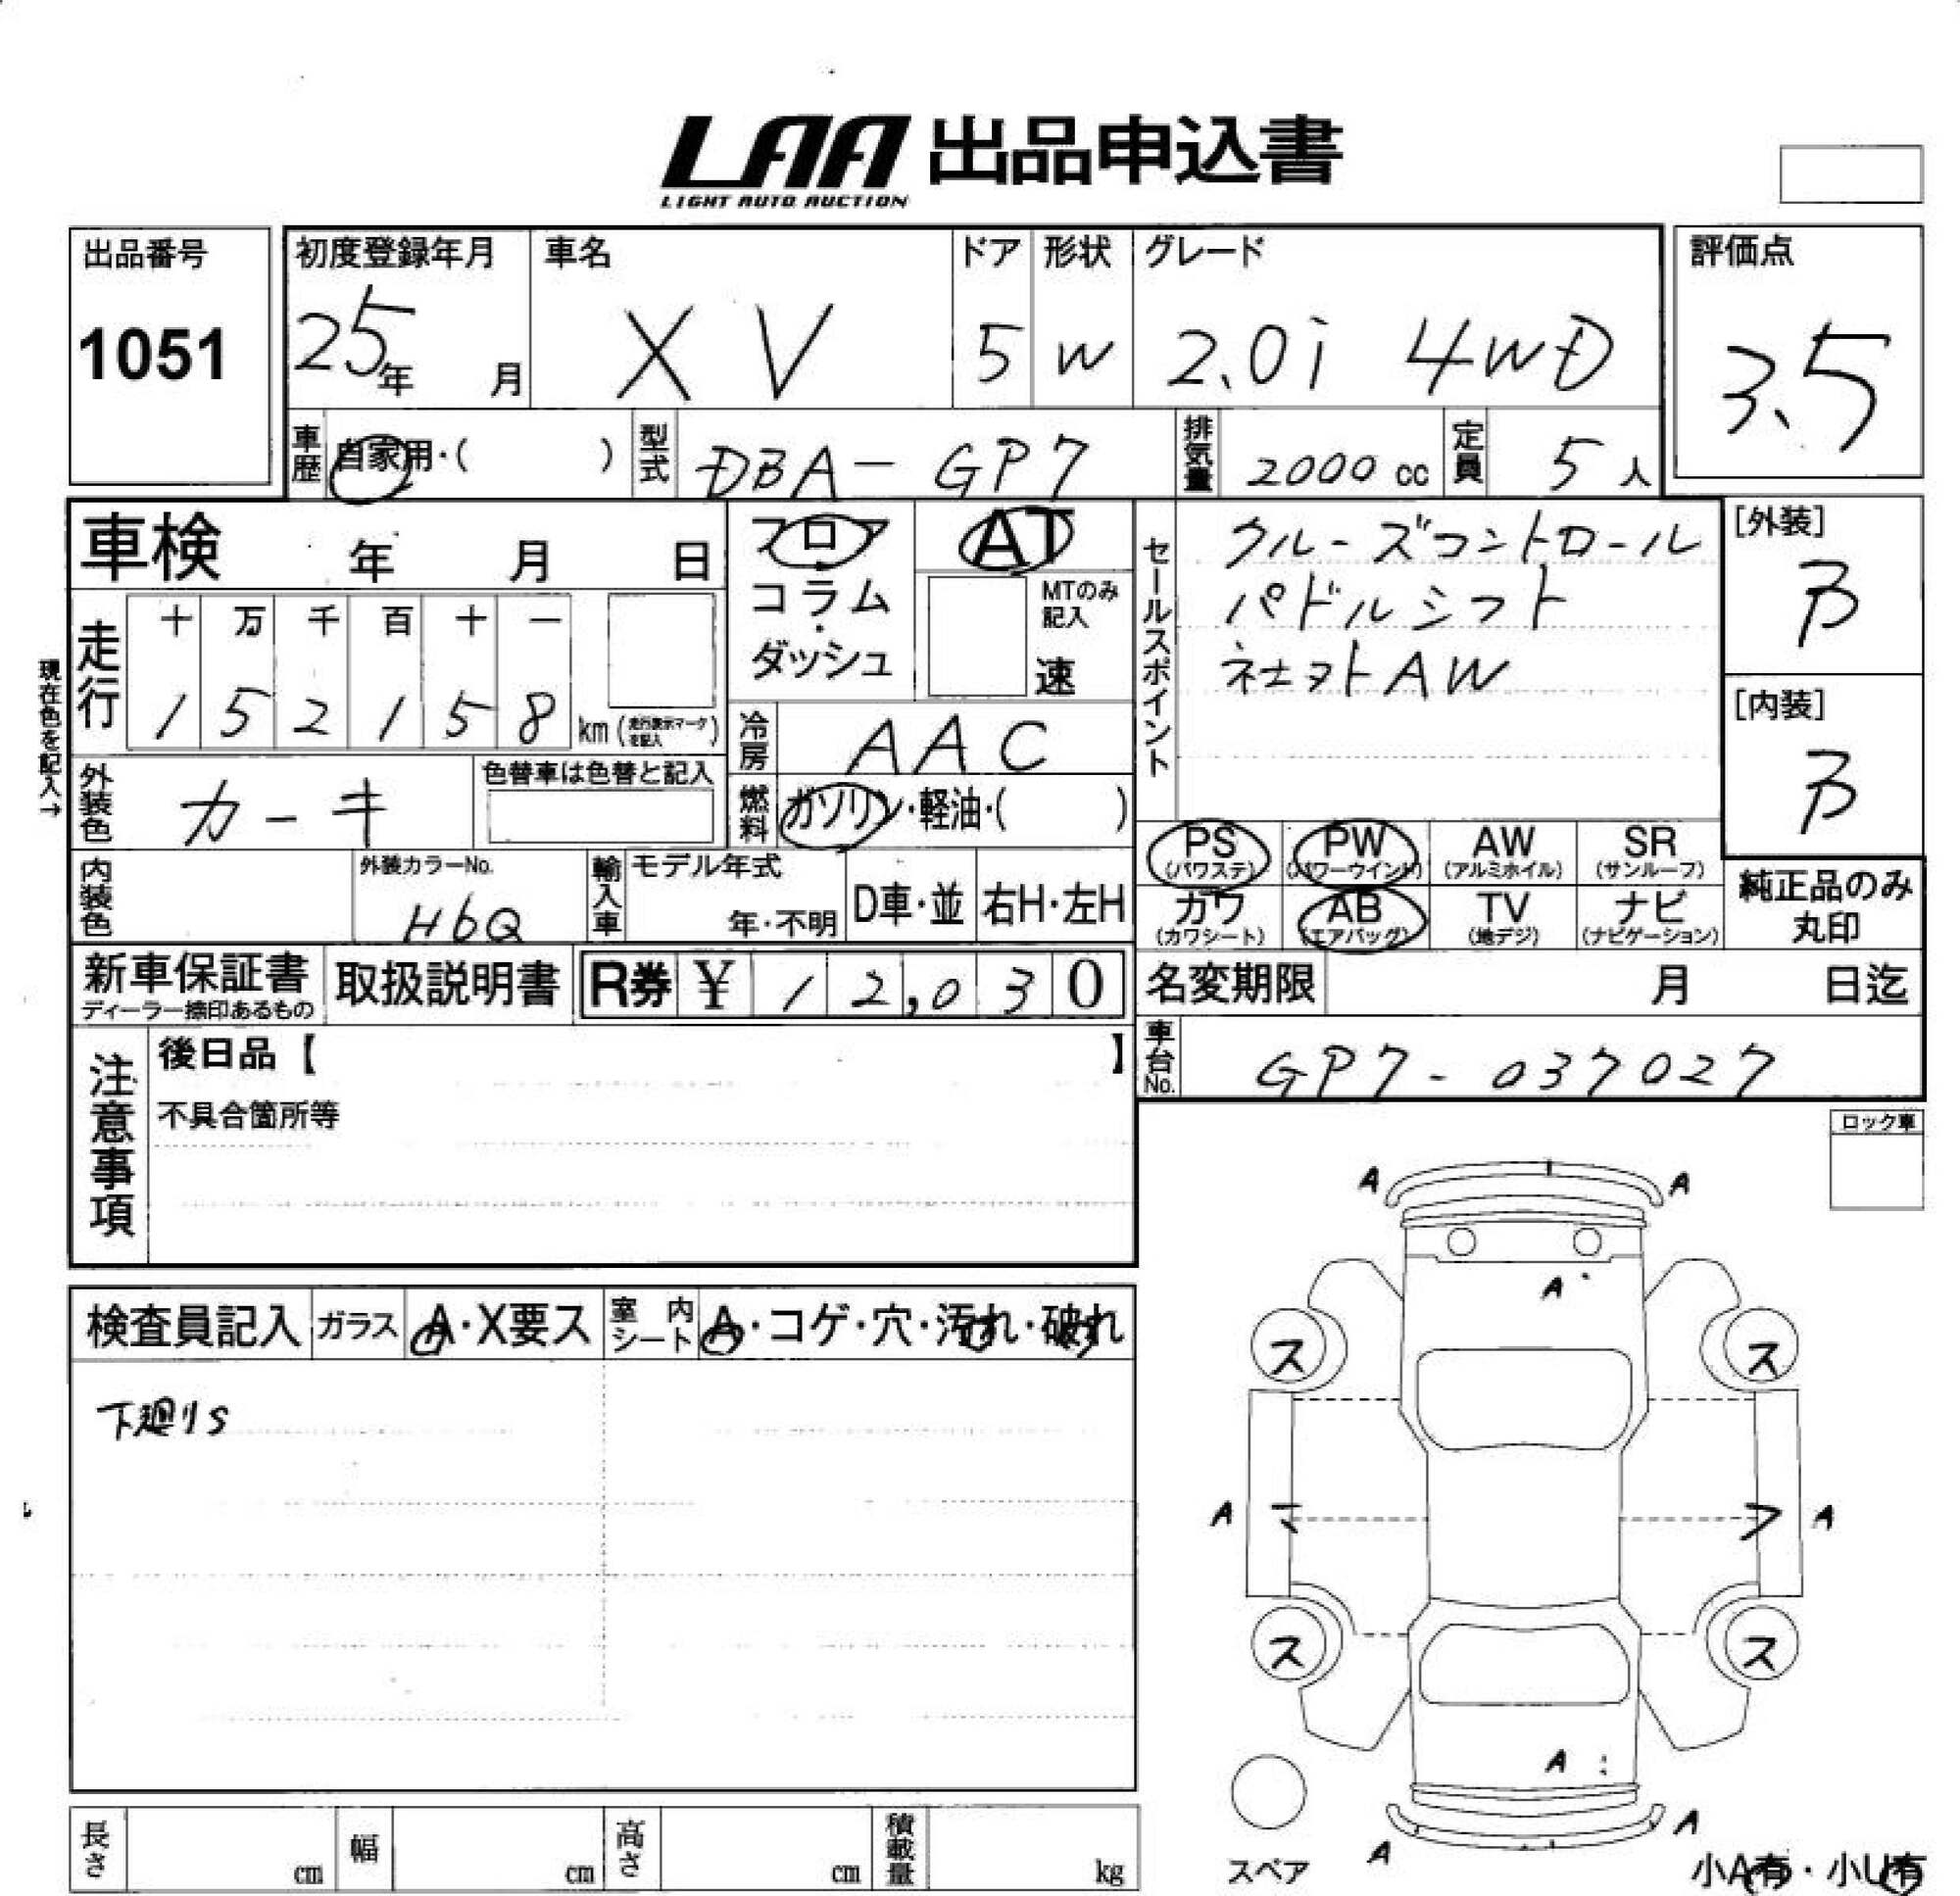 LAA 出品申込書
LIGHT AUTO AUCTION
出品番号
1051
初度登録年月
25年 月
車名
XV
ドア
5
形状
W
グレード
2.0i 4WD
評価点
3.5
車歴 自家用・( )
型式 DBA-GP7
排気量 2000 cc
定員 5 人
車検 年 月 日
フロア
コラム
・
ダッシュ
AT
MTのみ
記入
速
セールスポイント
クルーズコントロール
パドルシフト
社ヌトAW
[外装]
B
[内装]
B
現在色を記入→
走行
十 万 千 百 十 一
1 5 2 1 5 8
km (走行表示マークを記入)
冷房 AAC
外装色 カーキ
色替車は色替と記入
燃料 ガソリン・軽油・( )
PS (パワステ)
PW (パワーウインド)
AW (アルミホイル)
SR (サンルーフ)
カワ (カワシート)
AB (エアバッグ)
TV (地デジ)
ナビ (ナビゲーション)
純正品のみ
丸印
内装色
外装カラーNo.
H6Q
輸入車
モデル年式
年・不明
D車・並
右H・左H
新車保証書
ディーラー捺印あるもの
取扱説明書
R券 ¥ 12,030
名変期限 月 日迄
車台No. GP7-037027
注意事項
後日品【 】
不具合箇所等
ロック車
検査員記入
ガラス A・X要ス
室内シート A・コゲ・穴・汚れ・破れ
下廻りS
A A
A
ス ス
A A
ス ス
A
A A
スペア
小A有・小U有
長さ cm
幅 cm
高さ cm
積載量 kg